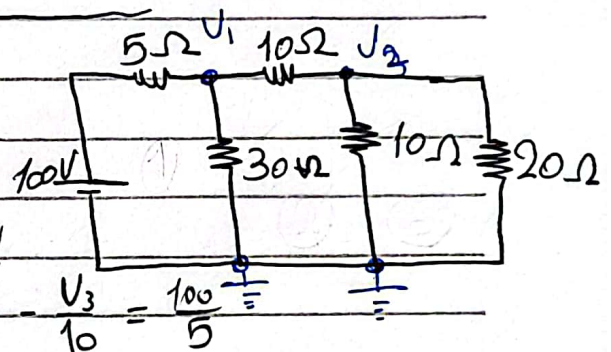 5Ω V₁ 10Ω V₂
100V 30Ω 10Ω 20Ω
- V₃/10 = 100/5